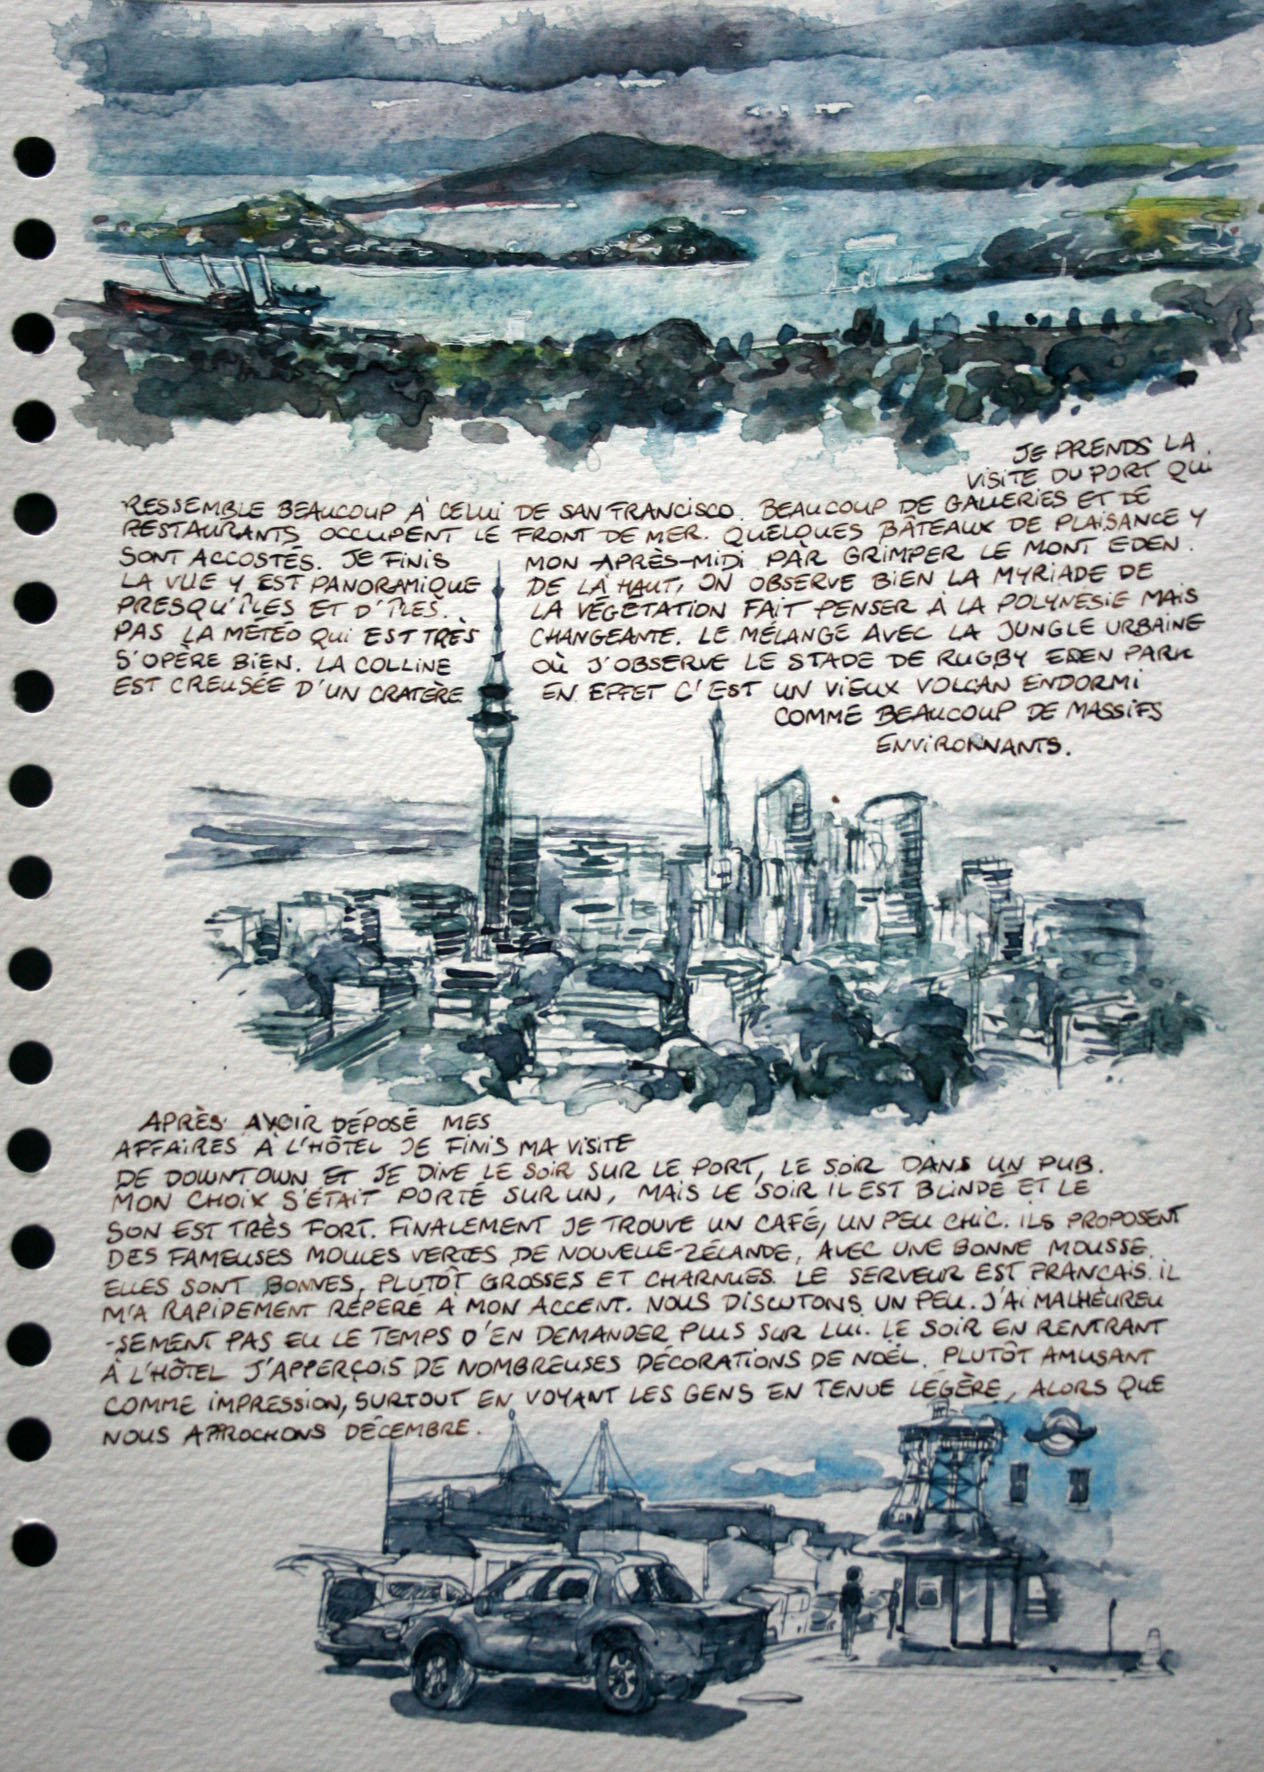 JE PRENDS LA
VISITE DU PORT QUI
RESSEMBLE BEAUCOUP À CELUI DE SAN FRANCISCO. BEAUCOUP DE GALLERIES ET DE
RESTAURANTS OCCUPENT LE FRONT DE MER. QUELQUES BÂTEAUX DE PLAISANCE Y
SONT ACCOSTÉS. JE FINIS MON APRÈS-MIDI PAR GRIMPER LE MONT EDEN.
LA VUE Y EST PANORAMIQUE DE LÀ HAUT, ON OBSERVE BIEN LA MYRIADE DE
PRESQU'ÎLES ET D'ÎLES. LA VÉGETATION FAIT PENSER À LA POLYNÉSIE MAIS
PAS LA MÉTÉO QUI EST TRÈS CHANGEANTE. LE MÉLANGE AVEC LA JUNGLE URBAINE
S'OPÈRE BIEN. LA COLLINE OÙ J'OBSERVE LE STADE DE RUGBY EDEN PARK
EST CREUSÉE D'UN CRATÈRE EN EFFET C'EST UN VIEUX VOLCAN ENDORMI
COMME BEAUCOUP DE MASSIFS
ENVIRONNANTS.
APRÈS AVOIR DÉPOSÉ MES
AFFAIRES À L'HÔTEL JE FINIS MA VISITE
DE DOWNTOWN ET JE DINE LE SOIR SUR LE PORT, LE SOIR DANS UN PUB.
MON CHOIX S'ÉTAIT PORTÉ SUR UN, MAIS LE SOIR IL EST BLINDÉ ET LE
SON EST TRÈS FORT. FINALEMENT JE TROUVE UN CAFÉ, UN PEU CHIC. ILS PROPOSENT
DES FAMEUSES MOULES VERTES DE NOUVELLE-ZÉLANDE, AVEC UNE BONNE MOUSSE.
ELLES SONT BONNES, PLUTÔT GROSSES ET CHARNUES. LE SERVEUR EST FRANCAIS. IL
M'A RAPIDEMENT RÉPÉRÉ À MON ACCENT. NOUS DISCUTONS UN PEU. J'AI MALHEUREU
-SEMENT PAS EU LE TEMPS D'EN DEMANDER PLUS SUR LUI. LE SOIR EN RENTRANT
À L'HÔTEL J'APPERÇOIS DE NOMBREUSES DÉCORATIONS DE NOËL. PLUTÔT AMUSANT
COMME IMPRESSION, SURTOUT EN VOYANT LES GENS EN TENUE LÉGÈRE, ALORS QUE
NOUS APPROCHONS DÉCEMBRE.